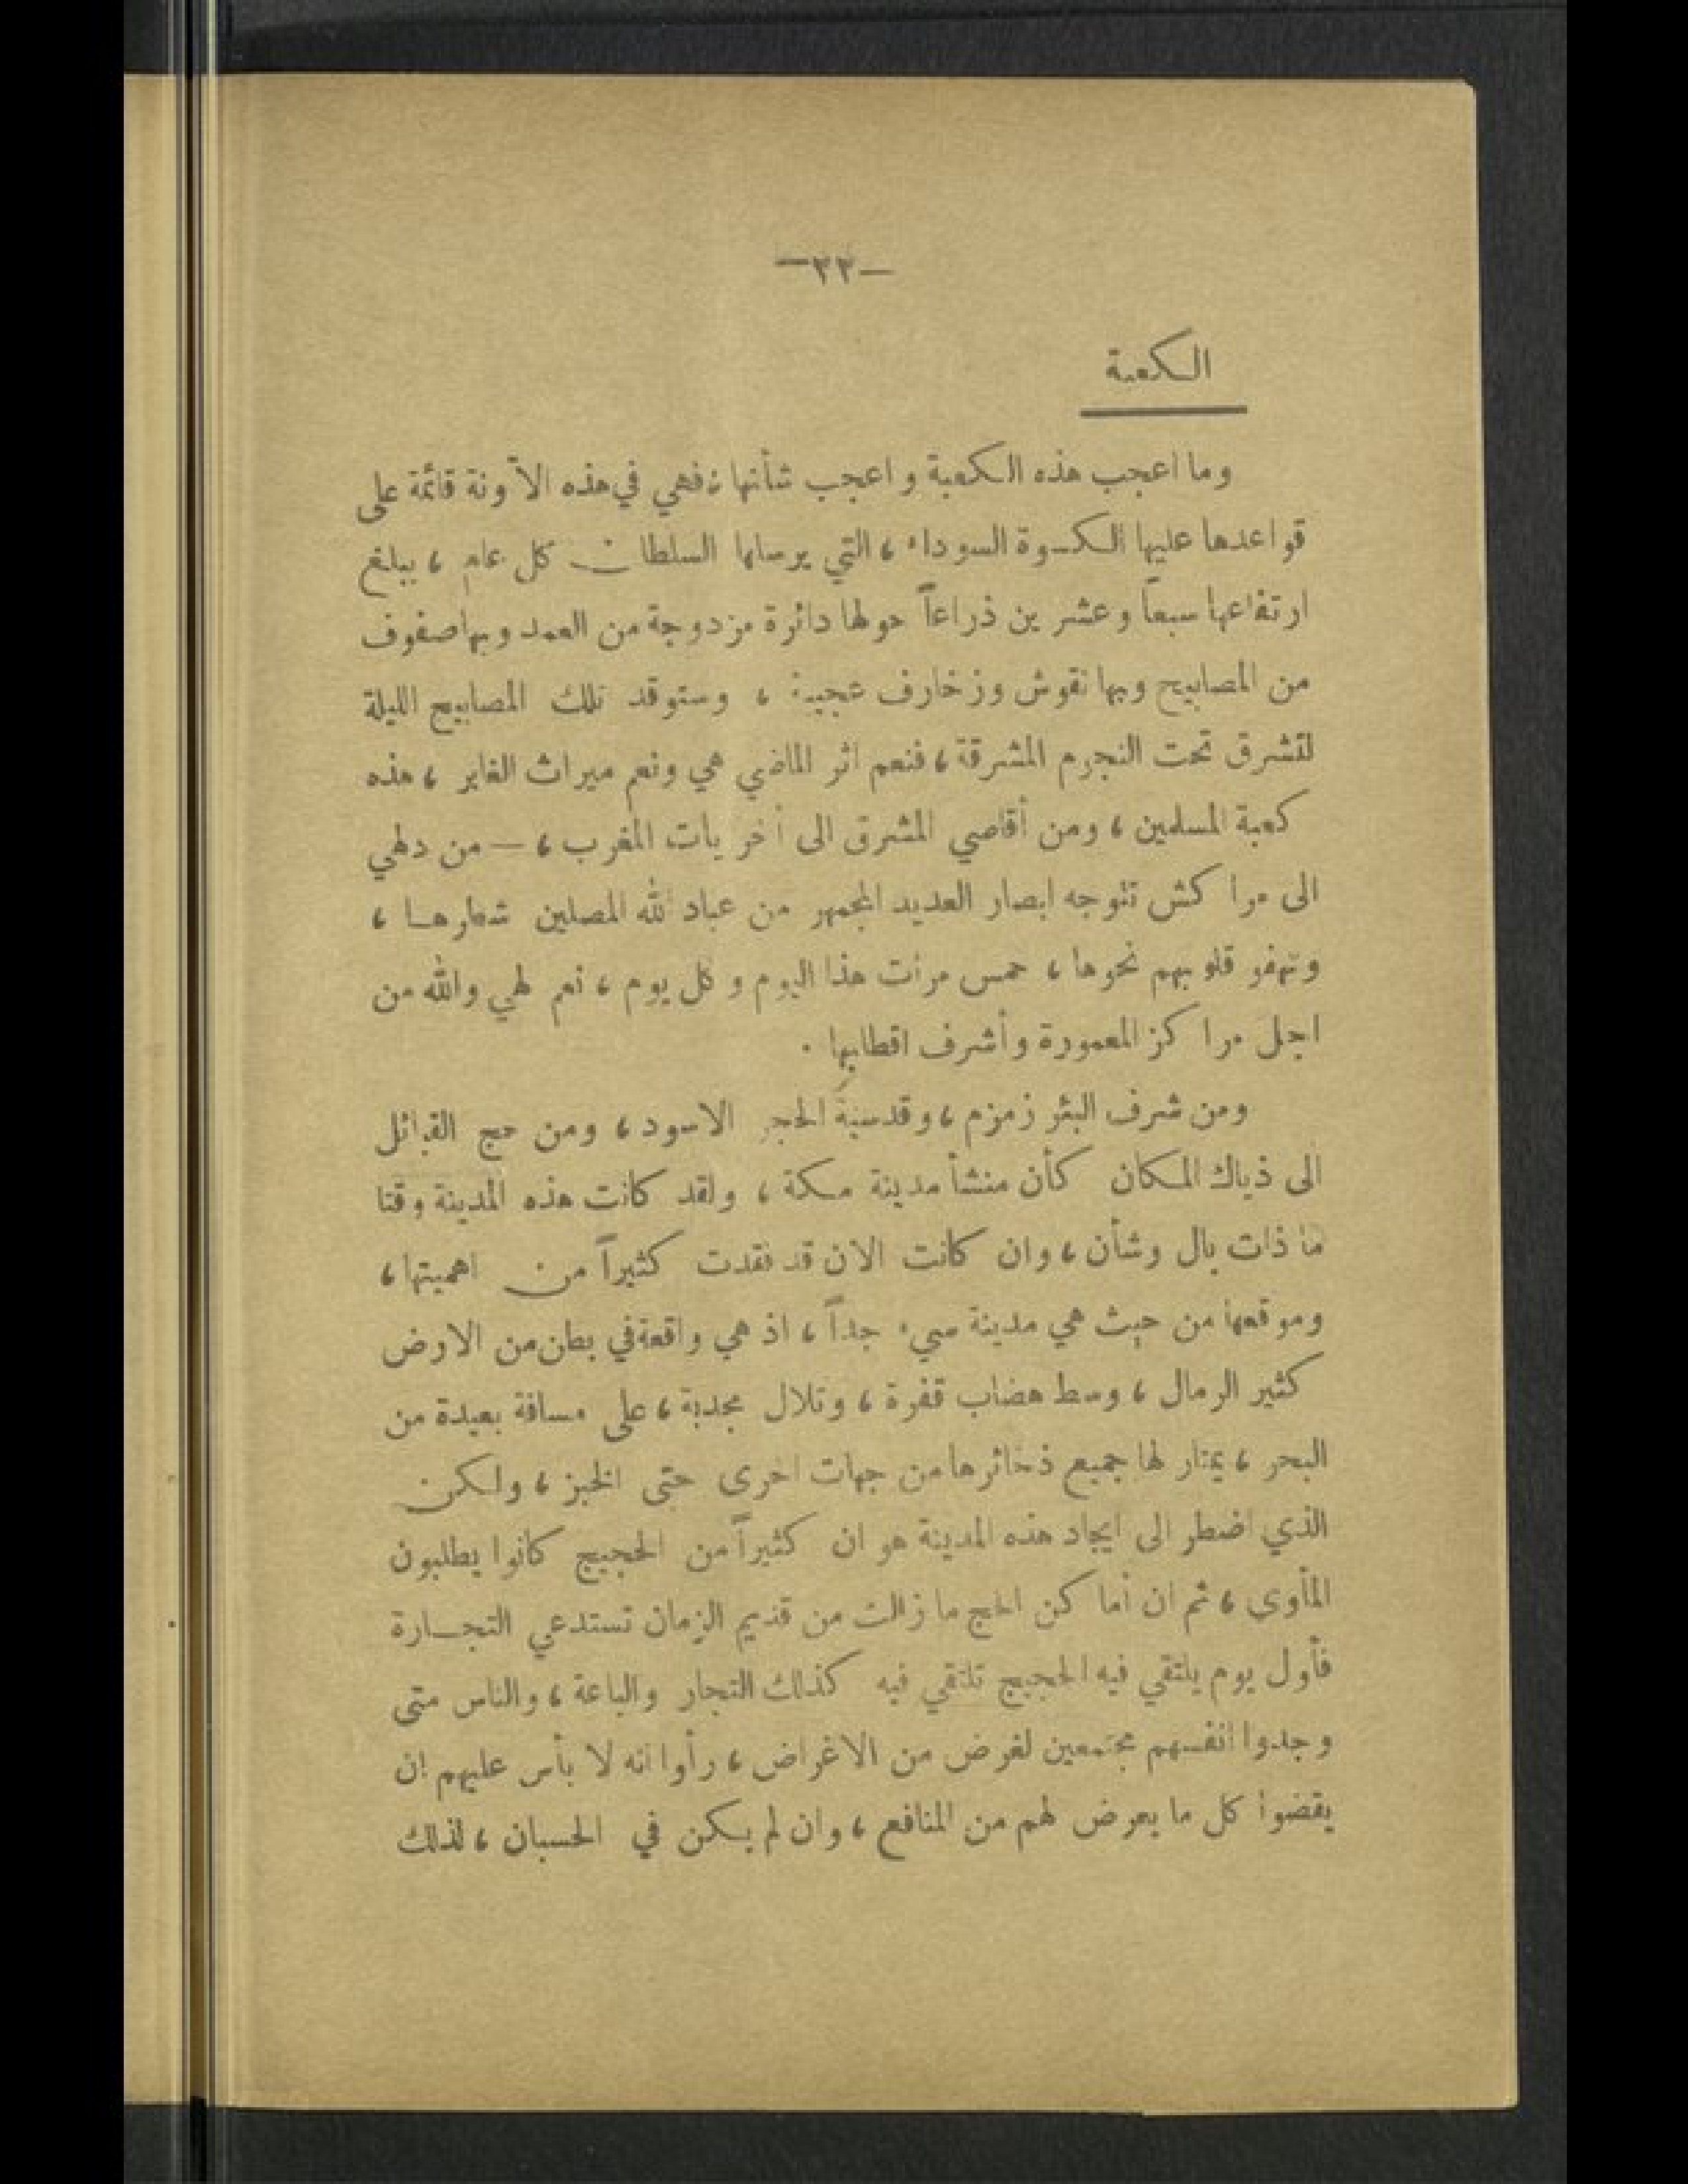 —٣٣—
الكعبة
وما اعجب هذه الكعبة واعجب شأنها ؛ فهي في هذه الآونة قائمة على
قواعدها عليها الكسوة السوداء ، التي يرسلها السلطان كل عام ، يبلغ
ارتفاعها سبعاً وعشرين ذراعاً حولها دائرة مزدوجة من العمد وبها صفوف
من المصابيح وبها نقوش وزخارف عجيبة ، وستوقد تلك المصابيح الليلة
لتشرق تحت النجوم المشرقة ، فنعم اثر الماضي هي ونعم ميراث الغابر ، هذه
كعبة المسلمين ، ومن أقاصي المشرق الى أخريات المغرب ، — من دلهي
الى مراكش تتوجه ابصار العديد المجمهر من عباد الله المصلين شطرها ،
وتهفو قلوبهم نحوها ، خمس مرات هذا اليوم وكل يوم ، نعم لهي والله من
اجل مراكز المعمورة وأشرف اقطابها .
ومن شرف البئر زمزم ، وقدسية الحجر الاسود ، ومن حج القبائل
الى ذياك المكان كأن منشأ مدينة مكة ، ولقد كانت هذه المدينة وقتا
ما ذات بال وشأن ، وان كانت الان قد فقدت كثيراً من اهميتها ،
وموقعها من حيث هي مدينة سيء جداً ، اذ هي واقعة في بطن من الارض
كثير الرمال ، وسط هضاب قفرة ، وتلال مجدبة ، على مسافة بعيدة من
البحر ، يمتار لها جميع ذخائرها من جهات اخرى حتى الخبز ، ولكن
الذي اضطر الى ايجاد هذه المدينة هو ان كثيراً من الحجيج كانوا يطلبون
المأوى ، ثم ان أماكن الحج ما زالت من قديم الزمان تستدعي التجارة
فأول يوم يلتقي فيه الحجيج تلتقي فيه كذلك التجار والباعة ، والناس متى
وجدوا انفسهم مجتمعين لغرض من الاغراض ، رأوا انه لا بأس عليهم ان
يقضوا كل ما يعرض لهم من المنافع ، وان لم يكن في الحسبان ، لذلك